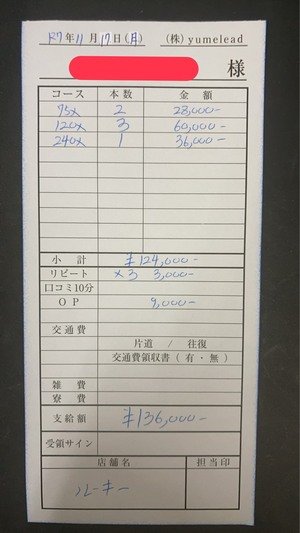 R7年11月17日(月) (株)yumelead
様
コース 本数 金額
75× 2 28,000-
120× 3 60,000-
240× 1 36,000-
小計 ¥124,000-
リピート ×3 3,000-
口コミ10分
OP 9,000-
交通費
片道 / 往復
交通費領収書(有・無)
雑費
寮費
支給額 ¥136,000-
受領サイン
店舗名 担当印
ルーキー